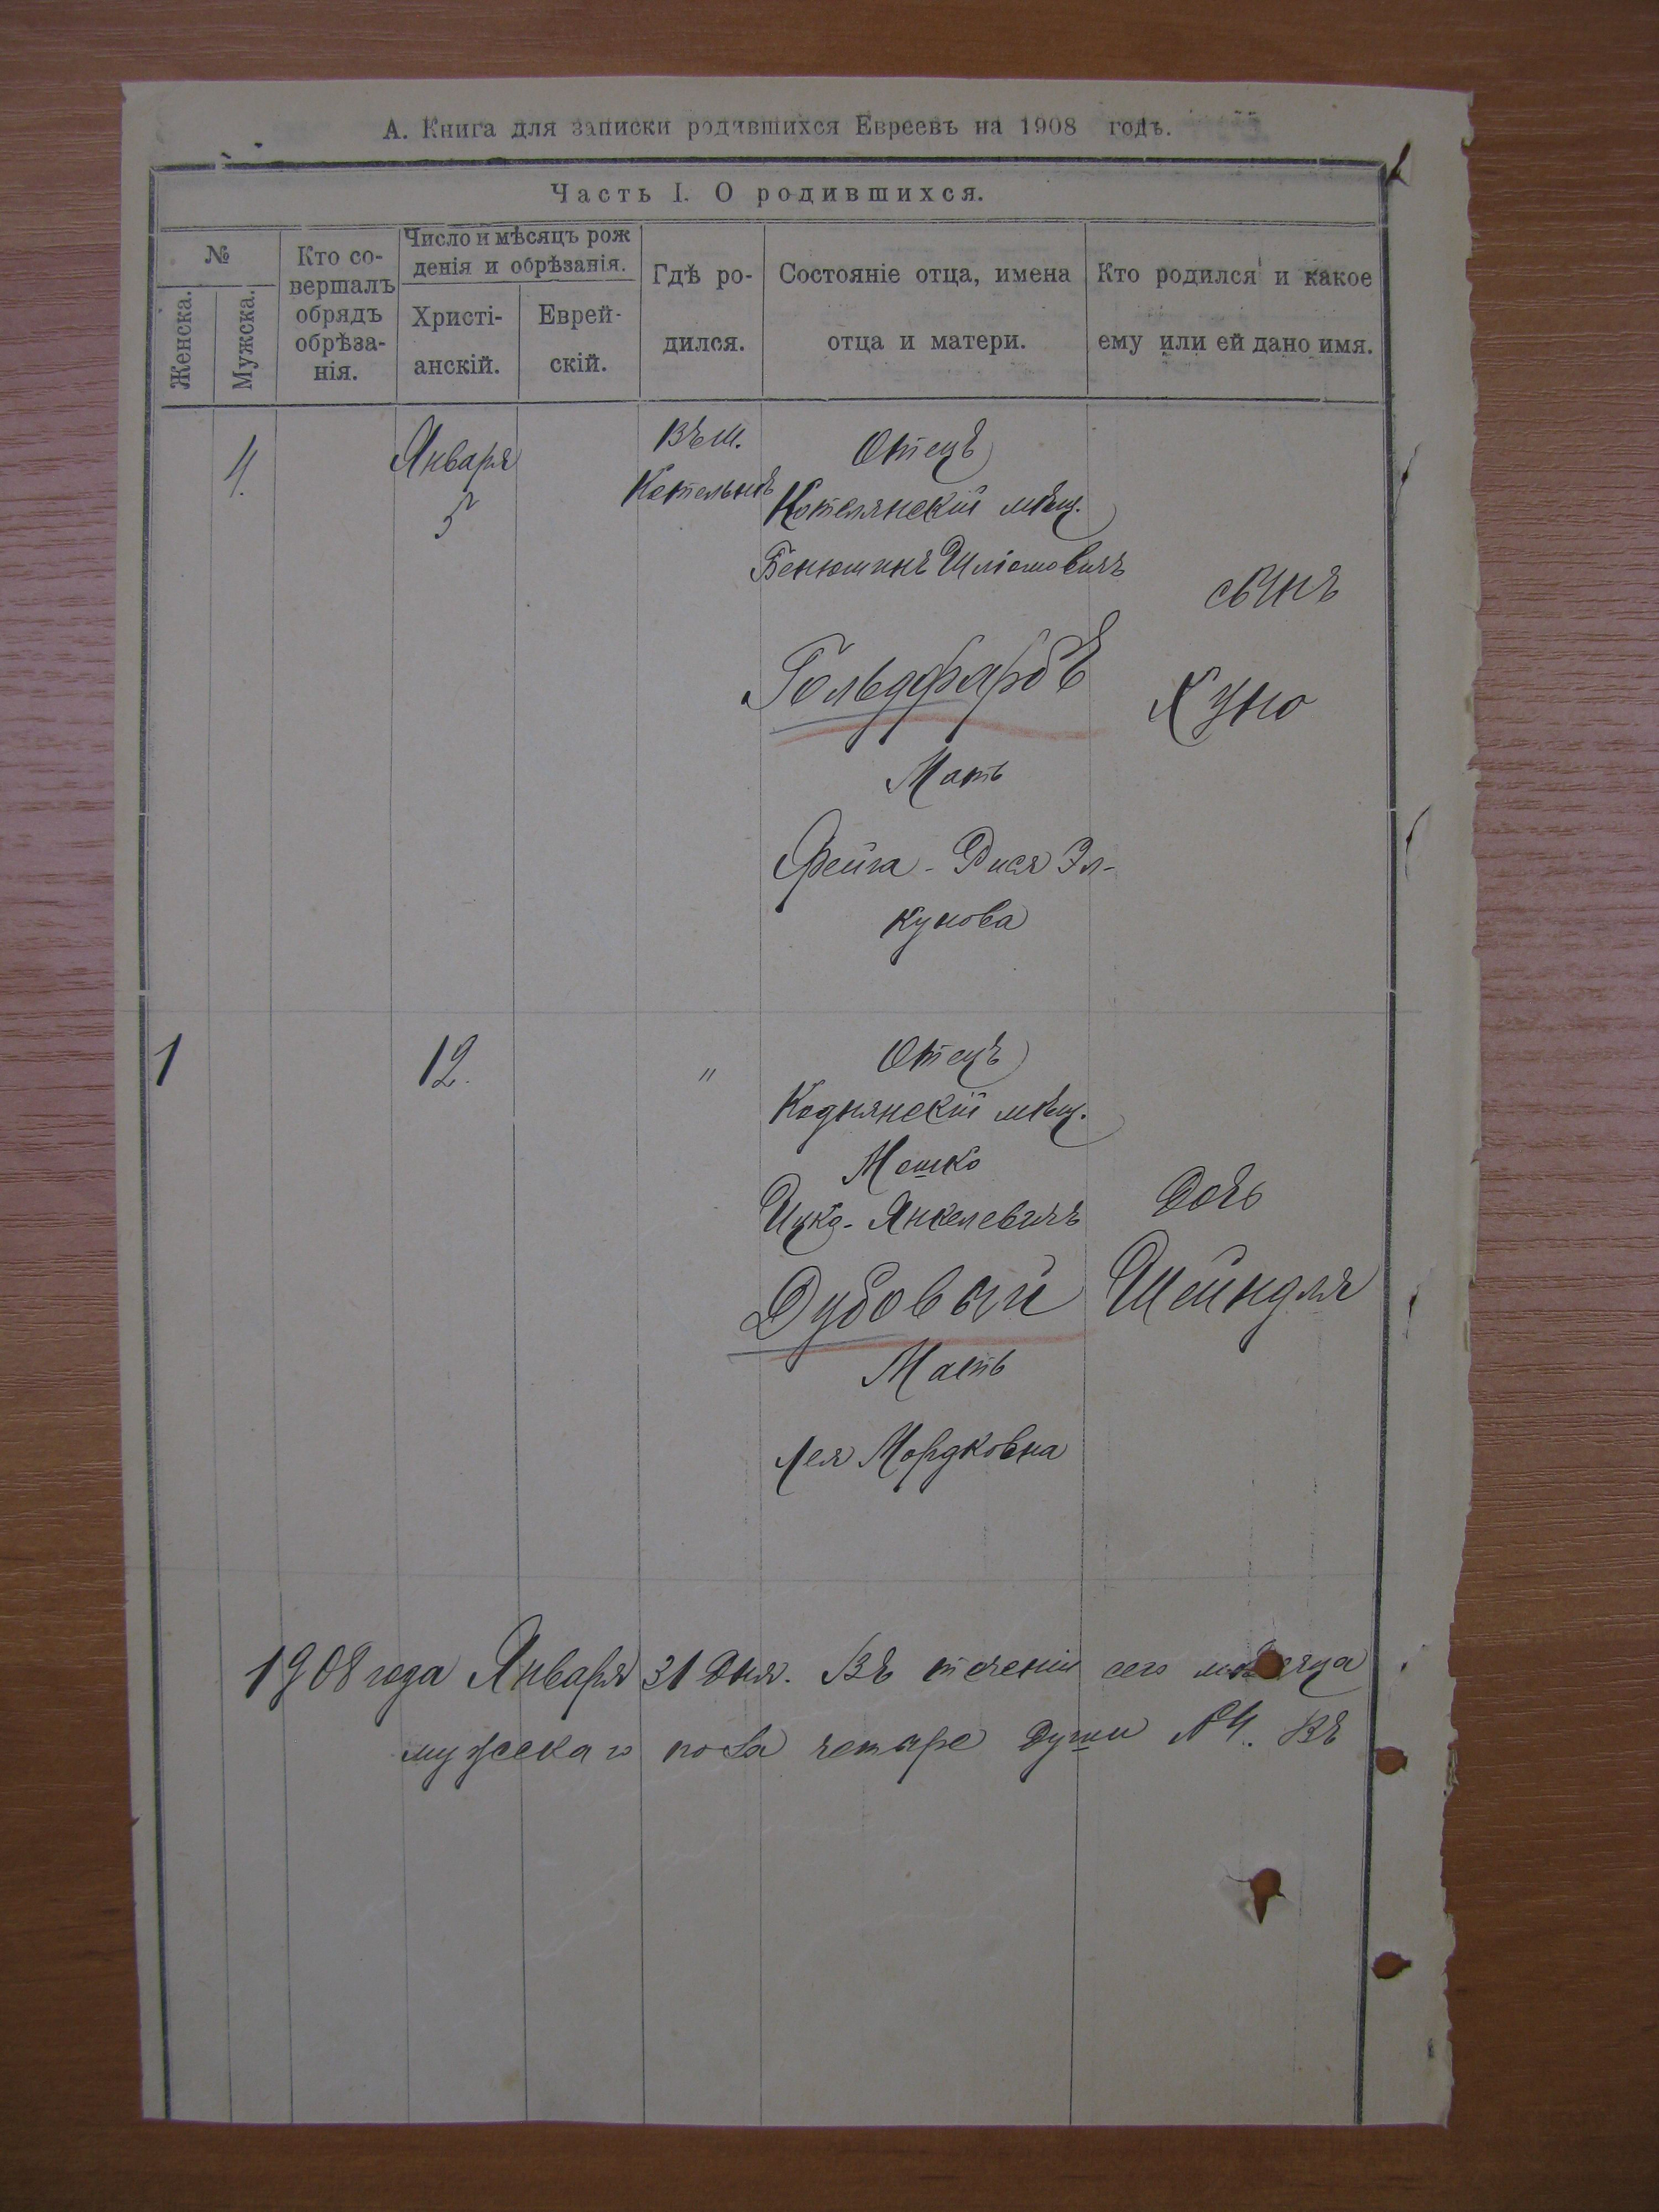 А. Книга для записки родившихся Евреевъ на 1908 годъ.
Часть I. О родившихся.
№
Женска.
Мужска.
Кто со-
вершалъ
обрядъ
обрѣза-
нія.
Число и мѣсяцъ рож
денія и обрѣзанія.
Христі-
анскій.
Еврей-
скій.
Гдѣ ро-
дился.
Состояніе отца, имена
отца и матери.
Кто родился и какое
ему или ей дано имя.
4.
Января
5
Въ м.
Котельнѣ
Отецъ
Котелянскій мѣщ.
Бенюминъ Шліомовичъ
Гольдфарбъ
Мать
Фейга - Рися Эл-
кунова
сынъ
Куно
1
12.
"
Отецъ
Коднянскій мѣщ.
Мошко
Ицко - Янкелевичъ
Дубовый
Мать
Лея Мордковна
дочь
Шейндля
1908 года Января 31 дня. Въ теченіи сего мѣсяца
мужескаго пола четыре души №4. Въ